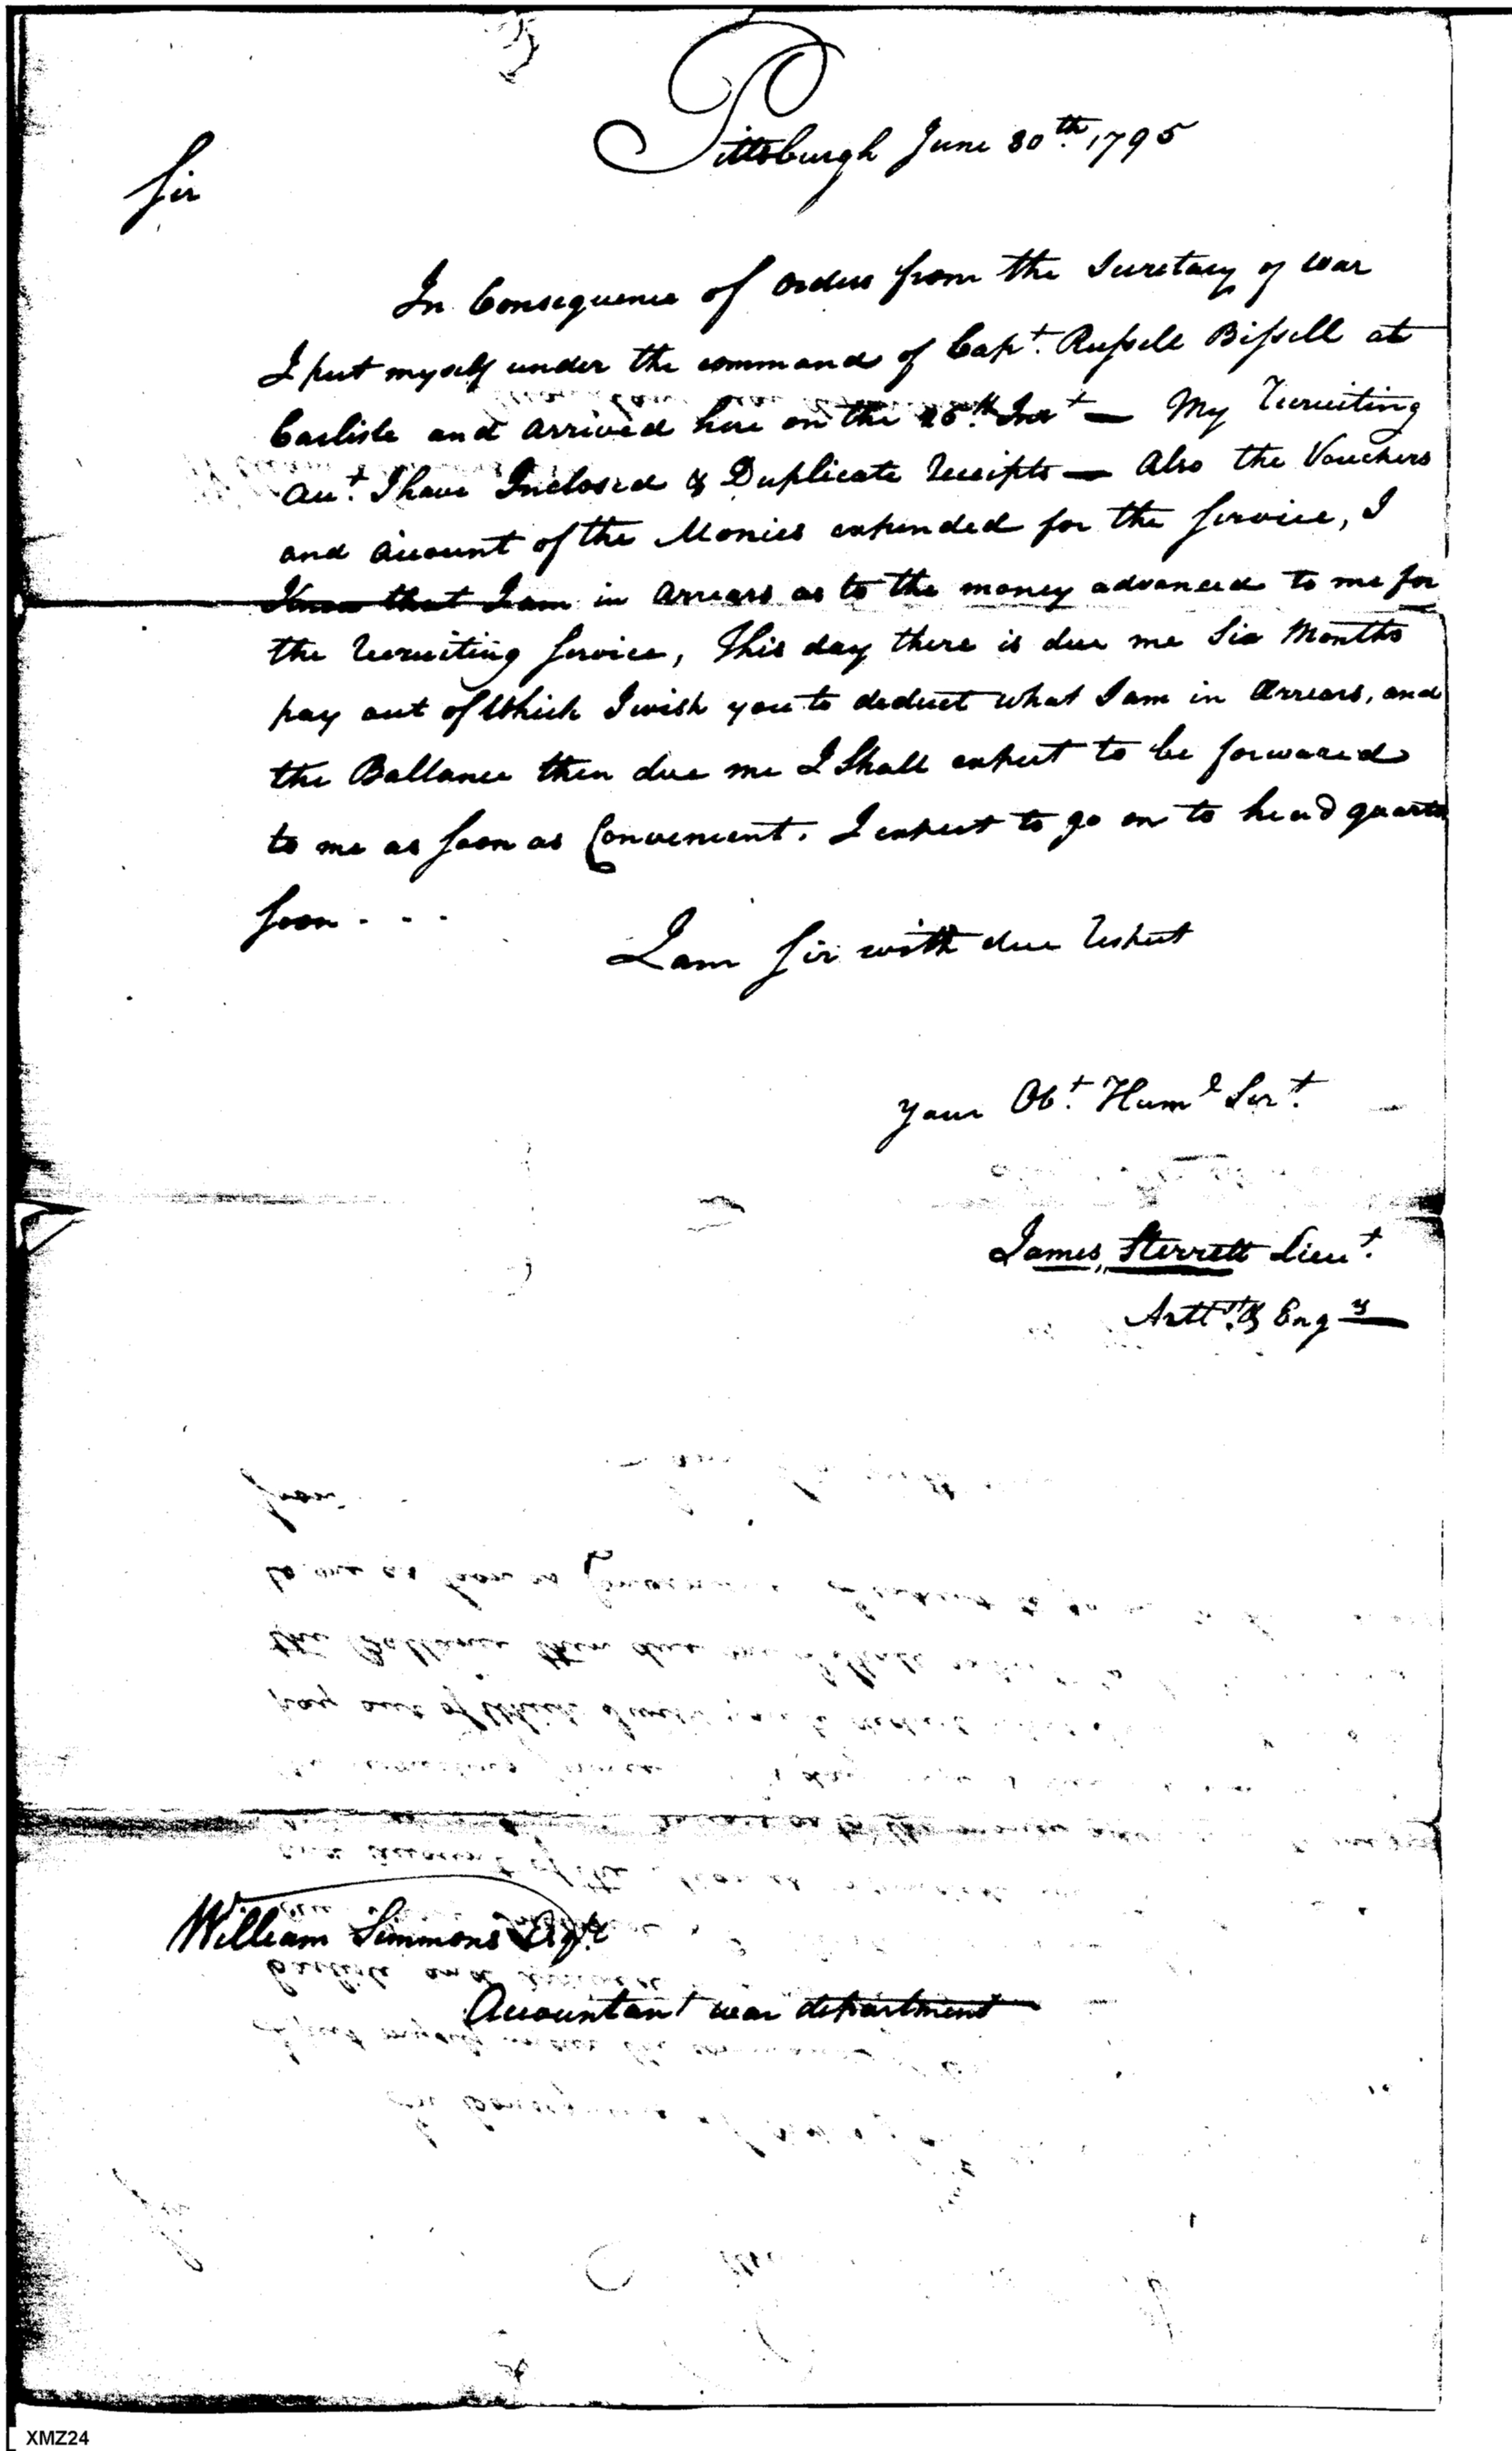 Pittsburgh June 30th. 1795
Sir
In Consequence of orders from the Secretary of War
I put myself under the command of Capt. Russell Bissell at
Carlisle and arrived here on the 26.th Inst — My Recruiting
Acct. I have Inclosed & Duplicate Receipts — Also the Vouchers
and account of the Monies expended for the Service, I
Know that I am in arrears as to the money advanced to me for
the recruiting Service, This day there is due me Six Months
pay out of Which I wish you to deduct what I am in Arrears, and
the Ballance then due me I Shall expect to be forwared
to me as Soon as Convenient. I expect to go on to head quarters
Soon - - -
I am Sir with due respect
your Obt. Huml Sert.
James Sterrett Lieut.
Artt. & Engrs
William Simmons Esqr.
Accountant war department
XMZ24